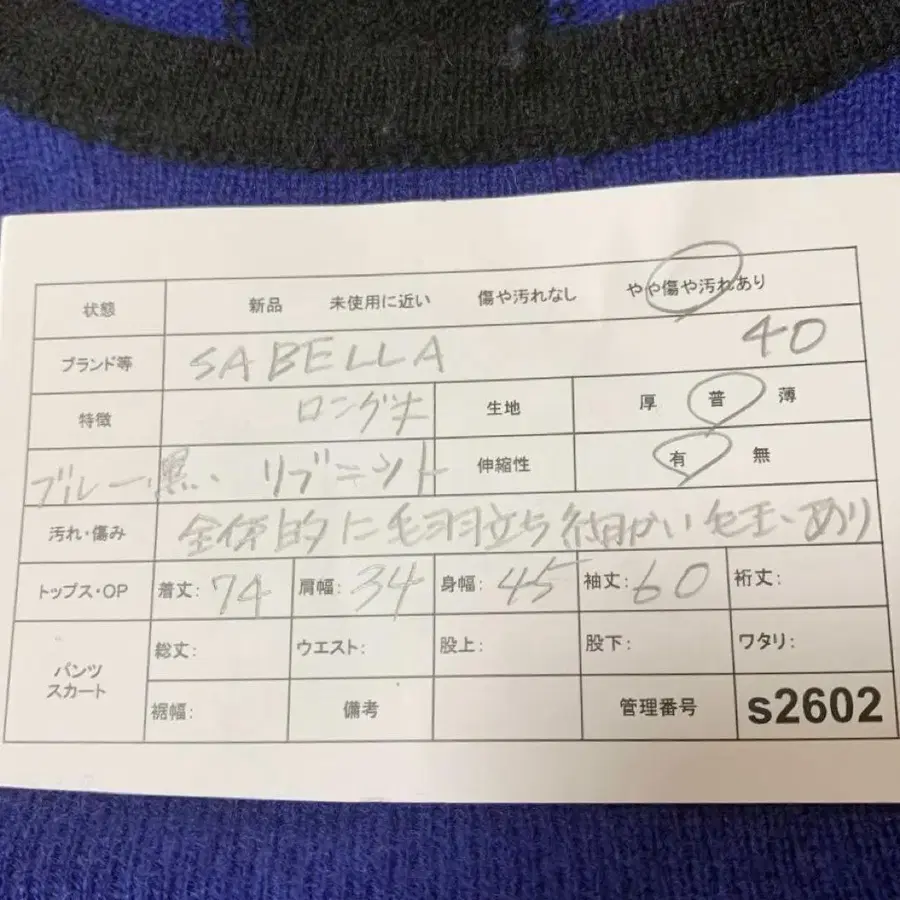 状態 新品 未使用に近い 傷や汚れなし やや傷や汚れあり
ブランド等 SABELLA 40
特徴 ロング丈 生地 厚 普 薄
ブルー・黒、リブニット 伸縮性 有 無
汚れ・傷み 全体的に毛羽立ち細かい毛玉、あり
トップス・OP 着丈: 74 肩幅: 34 身幅: 45 袖丈: 60 裄丈:
パンツ スカート 総丈: ウエスト: 股上: 股下: ワタリ:
裾幅: 備考 管理番号 s2602